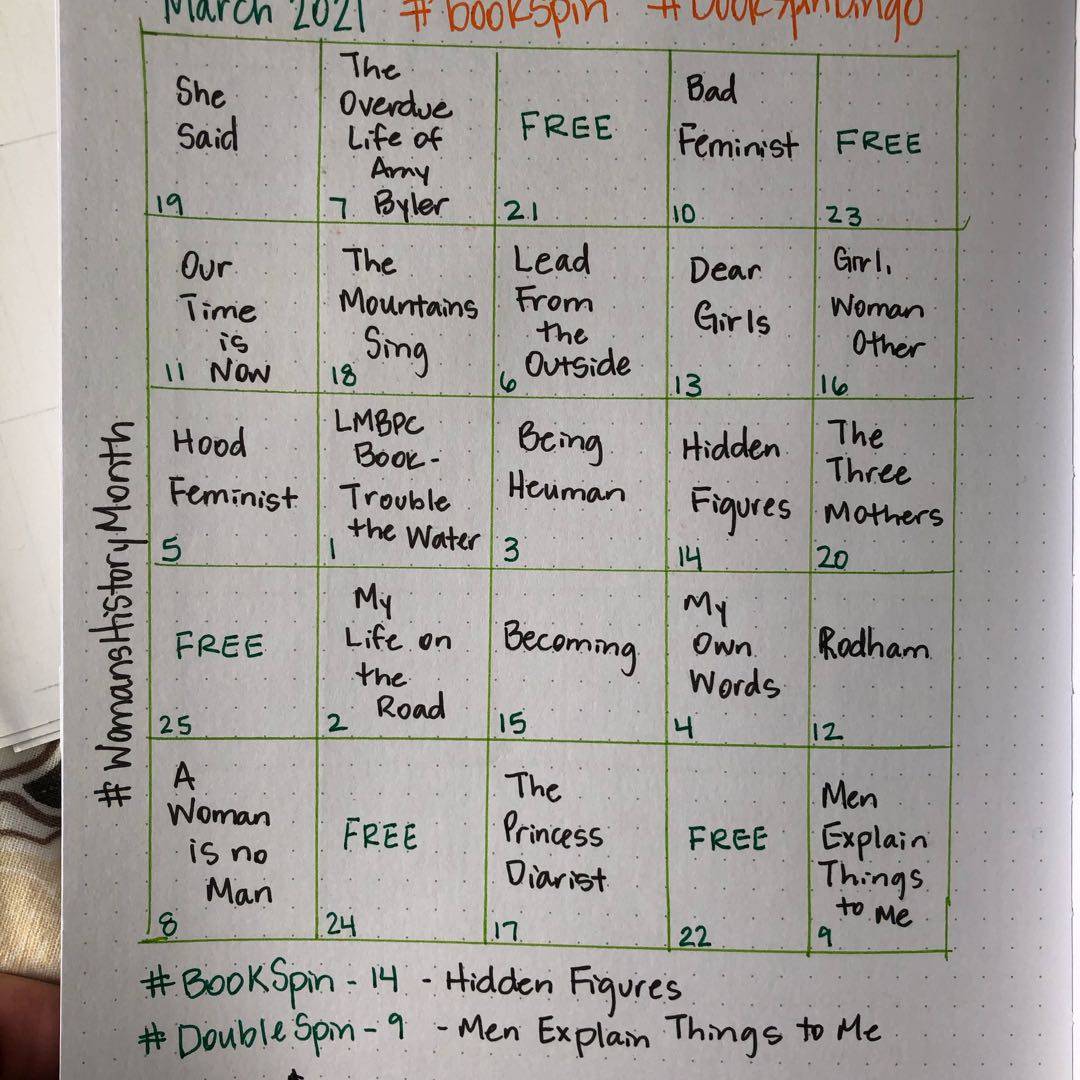 March 2021 #bookspin #bookspinbingo
She
Said
19
The
Overdue
Life of
Amy
Byler
7
FREE
21
Bad
Feminist
10
FREE
23
Our
Time
is
Now
11
The
Mountains
Sing
18
Lead
From
the
Outside
6
Dear
Girls
13
Girl,
Woman
Other
16
Hood
Feminist
5
LMBPC
Book-
Trouble
the Water
1
Being
Heuman
3
Hidden
Figures
14
The
Three
Mothers
20
FREE
25
My
Life on
the
Road
2
Becoming
15
My
Own
Words
4
Rodham
12
A
Woman
is no
Man
8
FREE
24
The
Princess
Diarist
17
FREE
22
Men
Explain
Things
to Me
9
#WomansHistoryMonth
#BookSpin - 14 - Hidden Figures
#DoubleSpin - 9 - Men Explain Things to Me